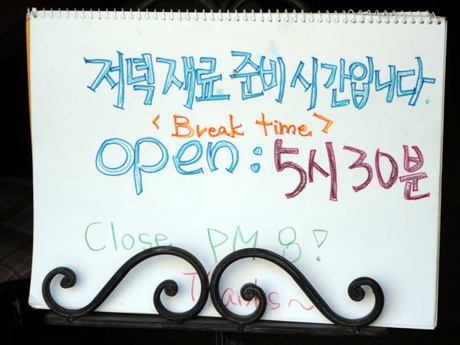 저녁 재료 준비 시간입니다.
< Break time >
open : 5시 30분
Close PM 8!
Thanks~